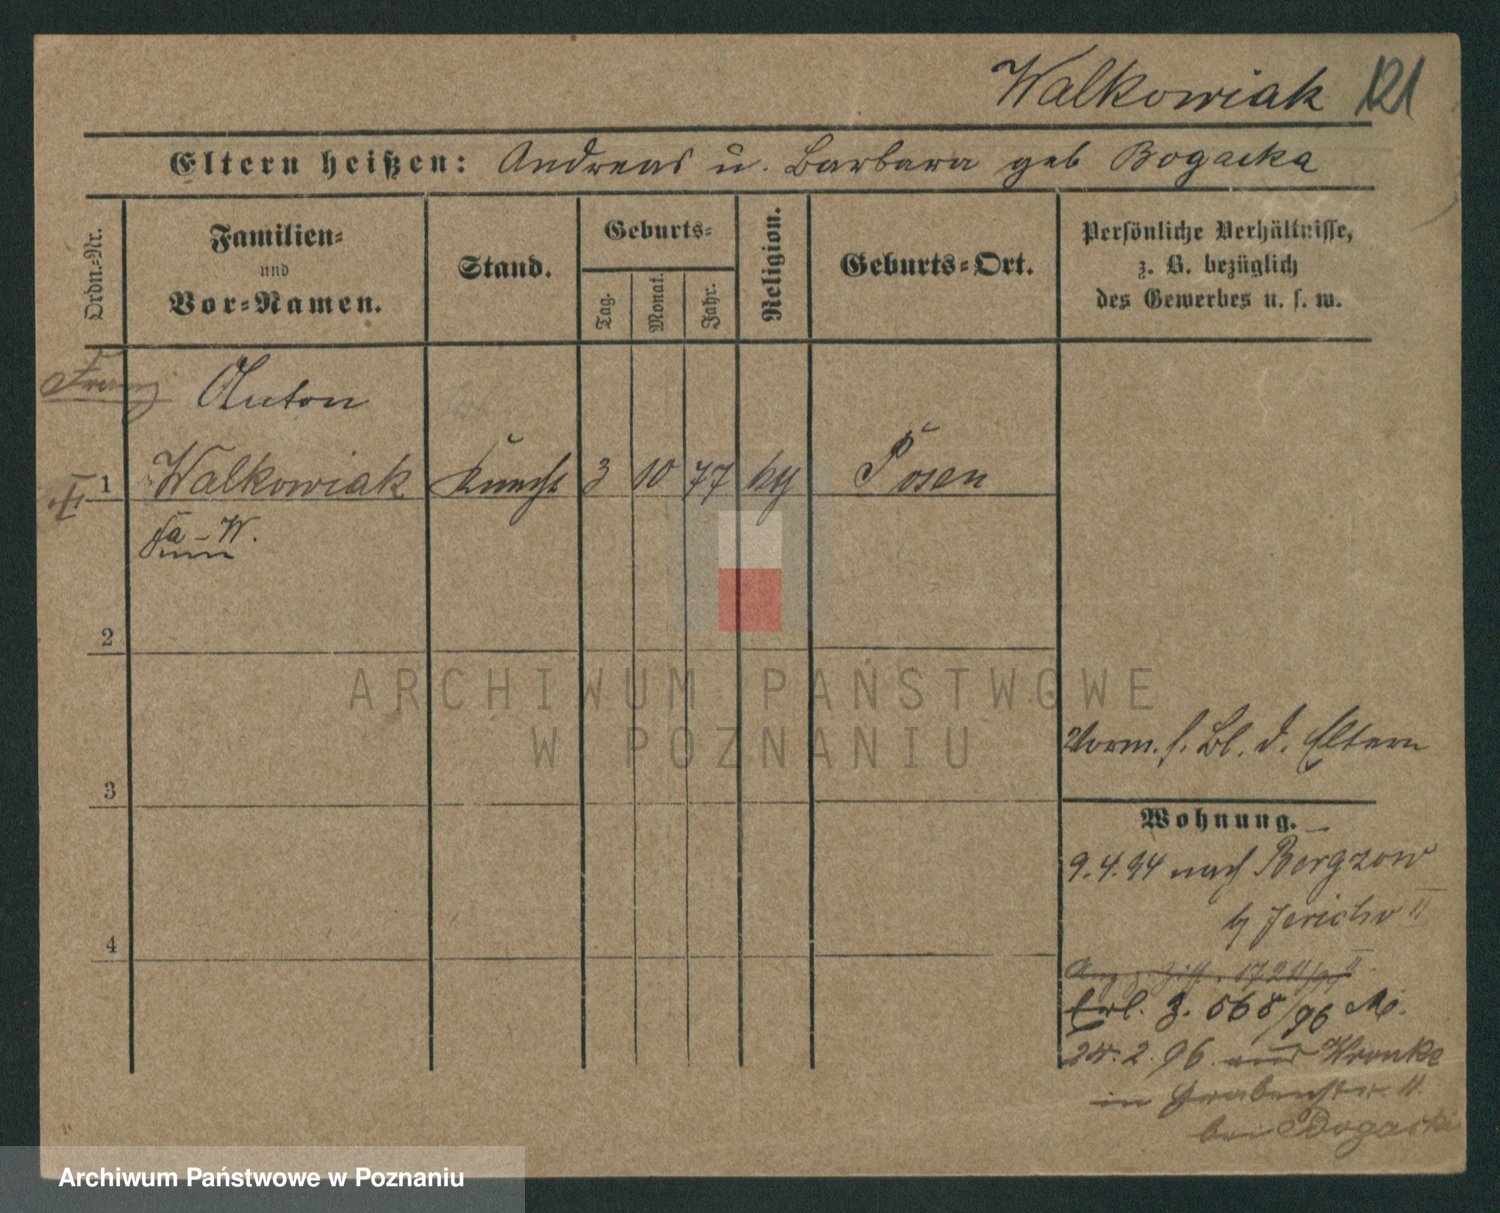 Walkowiak 121
Eltern heißen: Andreas u. Barbara geb Bogacka
Ordn.-Nr.
Familien-
und
Vor-Namen.
Stand.
Geburts-
Tag.
Monat.
Jahr.
Religion.
Geburts-Ort.
Persönliche Verhältnisse,
z. B. bezüglich
des Gewerbes u. s. w.
Franz Anton
1 Walkowiak Knecht 3 10 77 kg Posen
2
ARCHIWUM PAŃSTWOWE
W POZNANIU
Vorm. s. Bl. d. Eltern
3
Wohnung.
9.4.94 nach Bergzow
b/ Jericho II
4
Erl. 3. 568/96 M.
24.2.96. aus Wronke
in Grabenstr. 11.
bei Bogacki
Archiwum Państwowe w Poznaniu